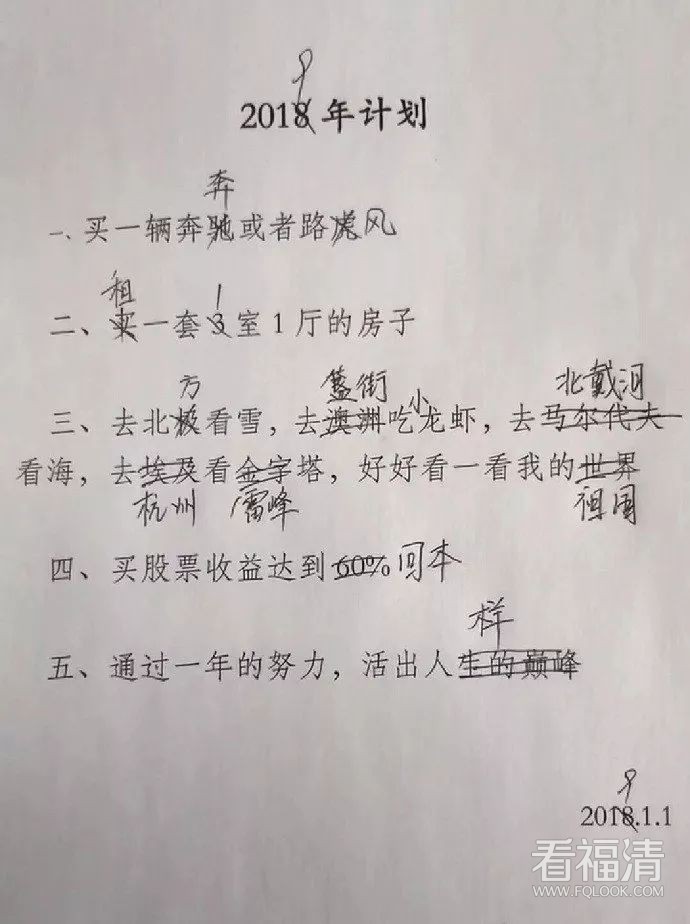 9
2018年计划
奔
一、买一辆奔驰或者路虎风
租 1
二、买一套3室1厅的房子
方 簋街 小 北戴河
三、去北极看雪，去澳洲吃龙虾，去马尔代夫
看海，去埃及看金字塔，好好看一看我的世界
杭州 雷峰 祖国
四、买股票收益达到60%回本
样
五、通过一年的努力，活出人生的巅峰
9
2018.1.1
看福清
WWW.FQLOOK.COM